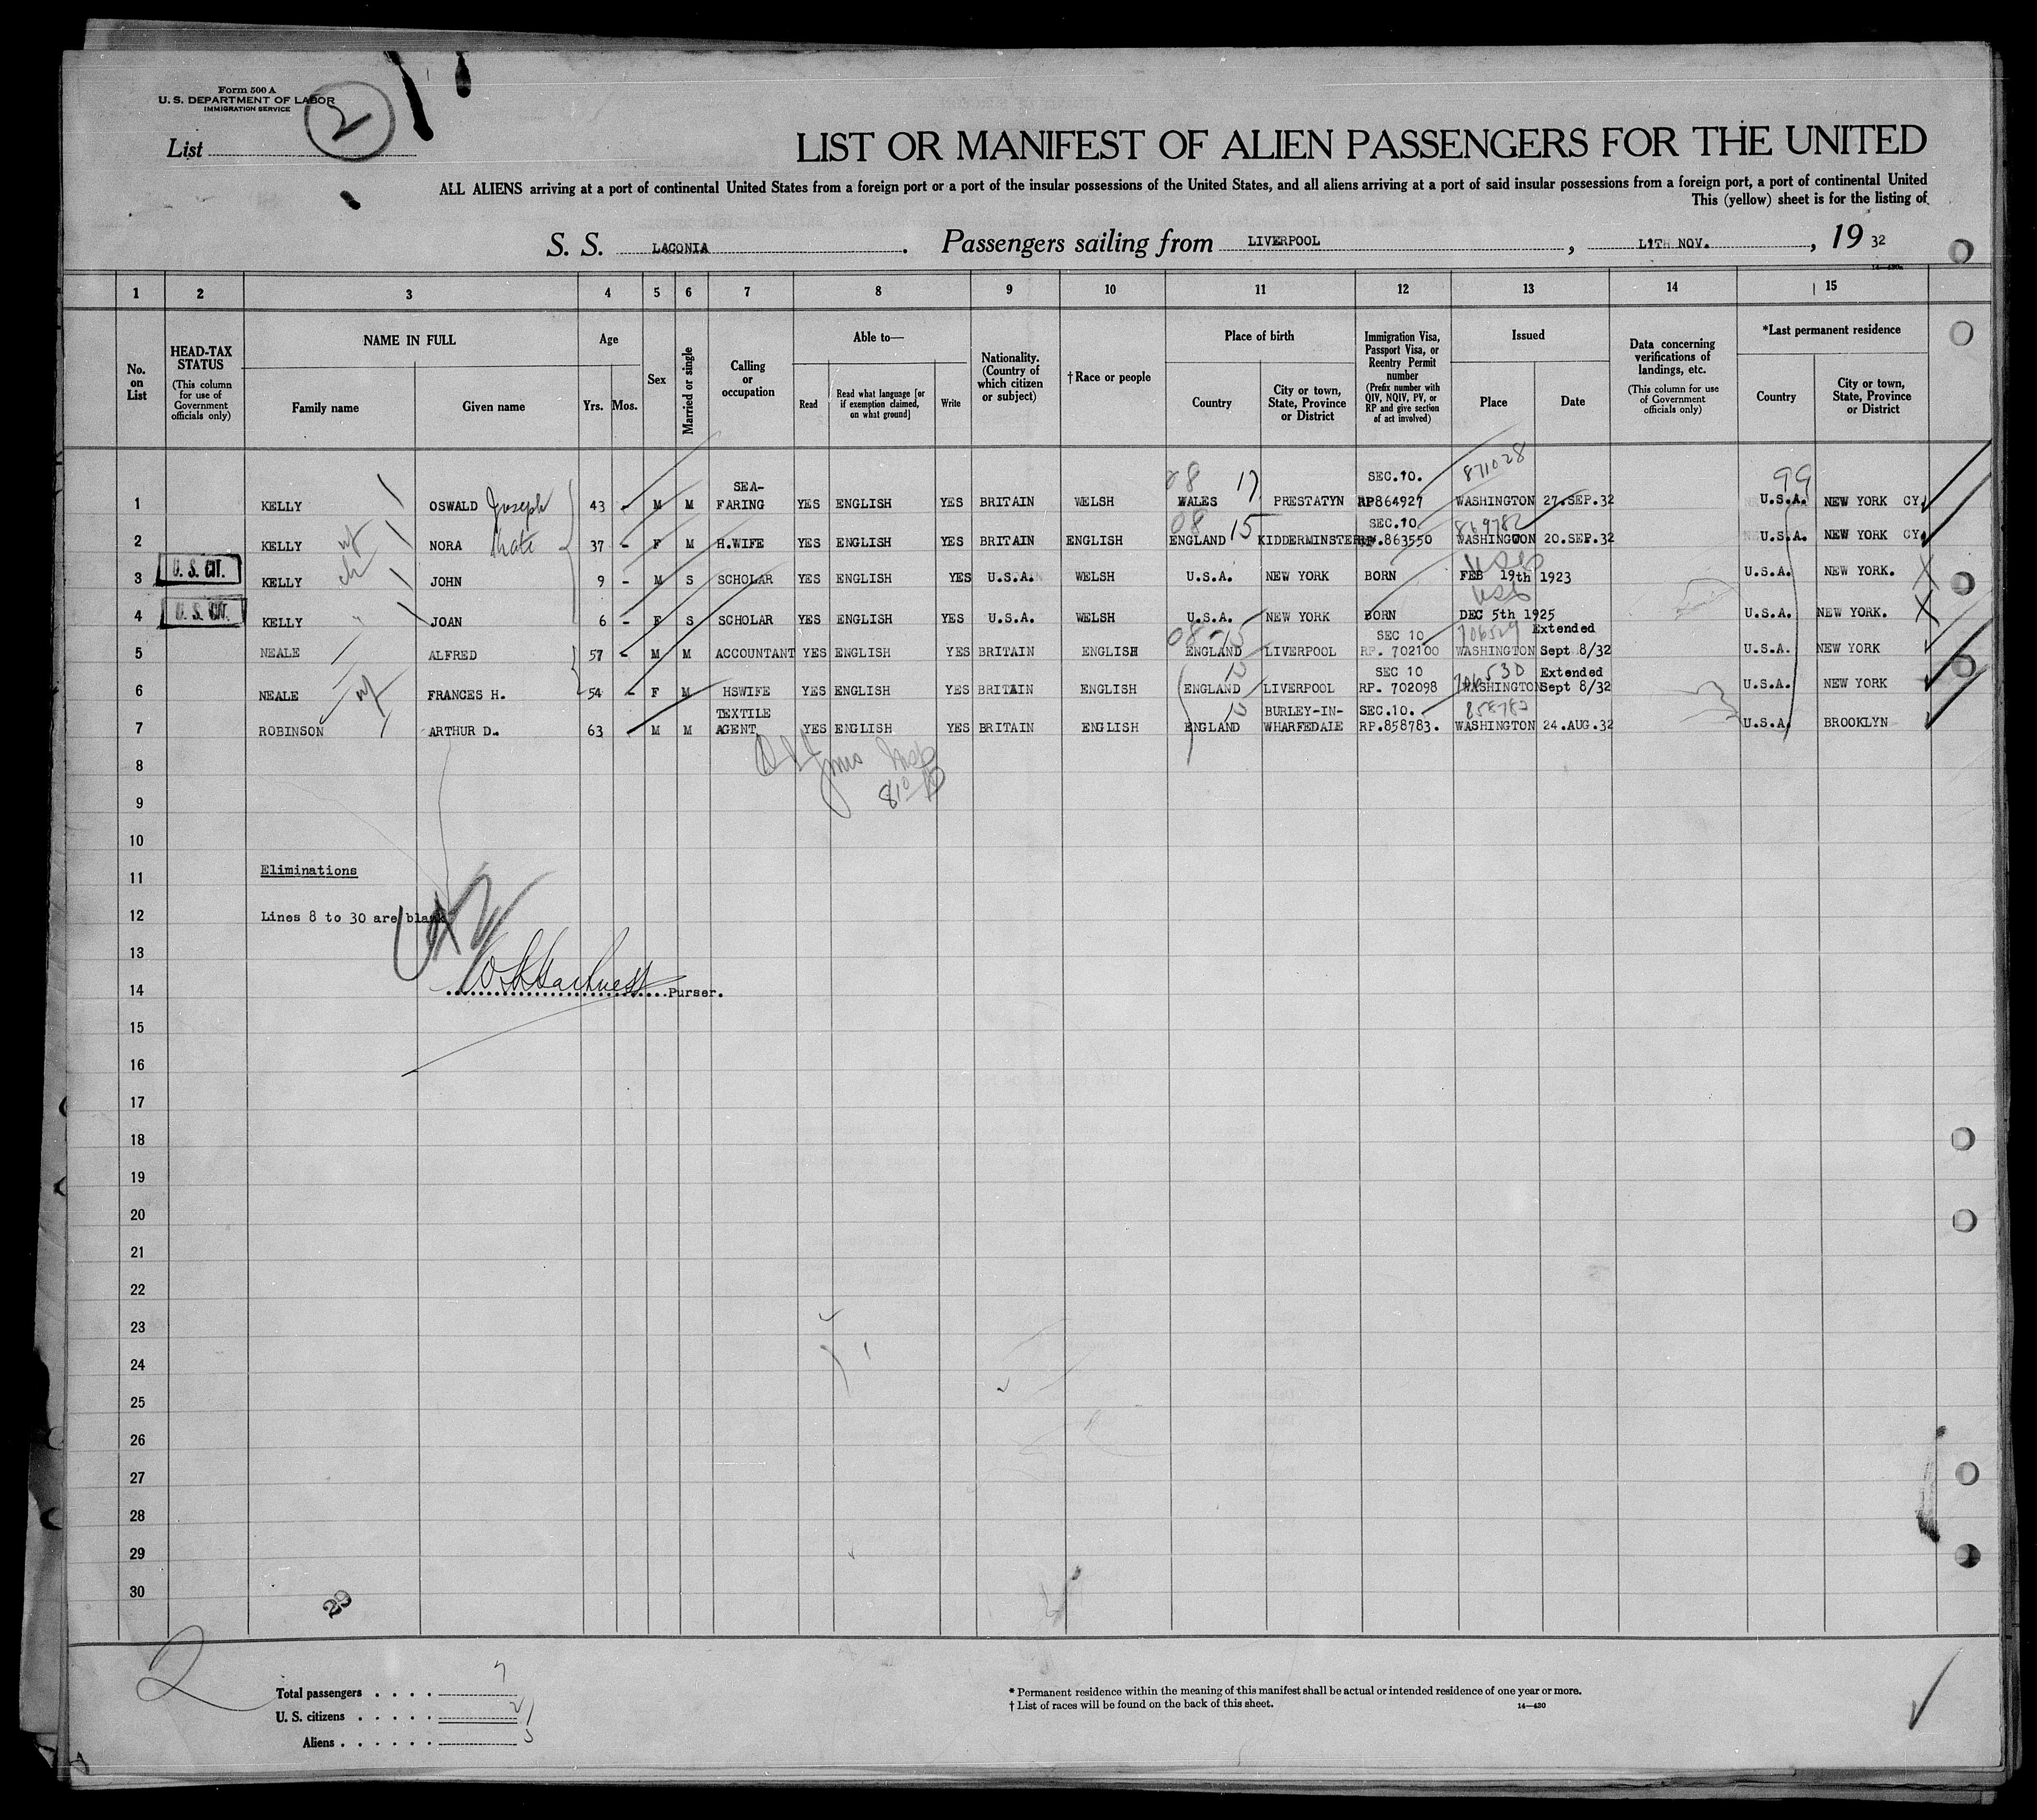 Form 500 A
U. S. DEPARTMENT OF LABOR
IMMIGRATION SERVICE
List 2
LIST OR MANIFEST OF ALIEN PASSENGERS FOR THE UNITED
ALL ALIENS arriving at a port of continental United States from a foreign port or a port of the insular possessions of the United States, and all aliens arriving at a port of said insular possessions from a foreign port, a port of continental United
This (yellow) sheet is for the listing of
S. S. LACONIA. Passengers sailing from LIVERPOOL, NOV., 19 32
1 2 3 4 5 6 7 8 9 10 11 12 13 14 15
No. on List
HEAD-TAX STATUS (This column for use of Government officials only)
NAME IN FULL
Family name Given name
Age
Yrs. Mos.
Sex
Married or single
Calling or occupation
Able to—
Read
Read what language [or if exemption claimed, on what ground]
Write
Nationality. (Country of which citizen or subject)
†Race or people
Place of birth
Country
City or town, State, Province or District
Immigration Visa, Passport Visa, or Reentry Permit number (Prefix number with QIV, NQIV, PV, or RP and give section of act involved)
Issued
Place Date
Data concerning verifications of landings, etc. (This column for use of Government officials only)
*Last permanent residence
Country
City or town, State, Province or District
08 17 871028 99
1 KELLY OSWALD Joseph 43 - M M SEA-FARING YES ENGLISH YES BRITAIN WELSH WALES PRESTATYN SEC.10. RP864927 WASHINGTON 27.SEP.32 U.S.A. NEW YORK CY.
08 15 869782
2 KELLY wf NORA Kate 37 - F M H.WIFE YES ENGLISH YES BRITAIN ENGLISH ENGLAND KIDDERMINSTER SEC.10 RP.863550 WASHINGTON 20.SEP.32 U.S.A. NEW YORK CY.
3 U.S. CIT. KELLY ch JOHN 9 - M S SCHOLAR YES ENGLISH YES U.S.A. WELSH U.S.A. NEW YORK BORN FEB 19th 1923 U.S.A. NEW YORK.
4 U.S. CIT. KELLY " JOAN 6 - F S SCHOLAR YES ENGLISH YES U.S.A. WELSH U.S.A. NEW YORK BORN DEC 5th 1925 U.S.A. NEW YORK.
08 - 15 706529
5 NEALE ALFRED 57 - M M ACCOUNTANT YES ENGLISH YES BRITAIN ENGLISH ENGLAND LIVERPOOL SEC 10 RP. 702100 WASHINGTON Extended Sept 8/32 U.S.A. NEW YORK
15 706530
6 NEALE wf FRANCES H. 54 - F M HSWIFE YES ENGLISH YES BRITAIN ENGLISH ENGLAND LIVERPOOL SEC 10 RP. 702098 WASHINGTON Extended Sept 8/32 U.S.A. NEW YORK
15 858783
7 ROBINSON ARTHUR D. 63 M M TEXTILE AGENT YES ENGLISH YES BRITAIN ENGLISH ENGLAND BURLEY-IN-WHARFEDALE SEC.10. RP.858783. WASHINGTON 24.AUG.32 U.S.A. BROOKLYN
8
9
10
11 Eliminations
12 Lines 8 to 30 are blank
13
14 Purser.
15
16
17
18
19
20
21
22
23
24
25
26
27
28
29
30
29
2
Total passengers . . . . 7
U. S. citizens . . . . . 2
Aliens . . . . . . 5
* Permanent residence within the meaning of this manifest shall be actual or intended residence of one year or more.
† List of races will be found on the back of this sheet.
14—430